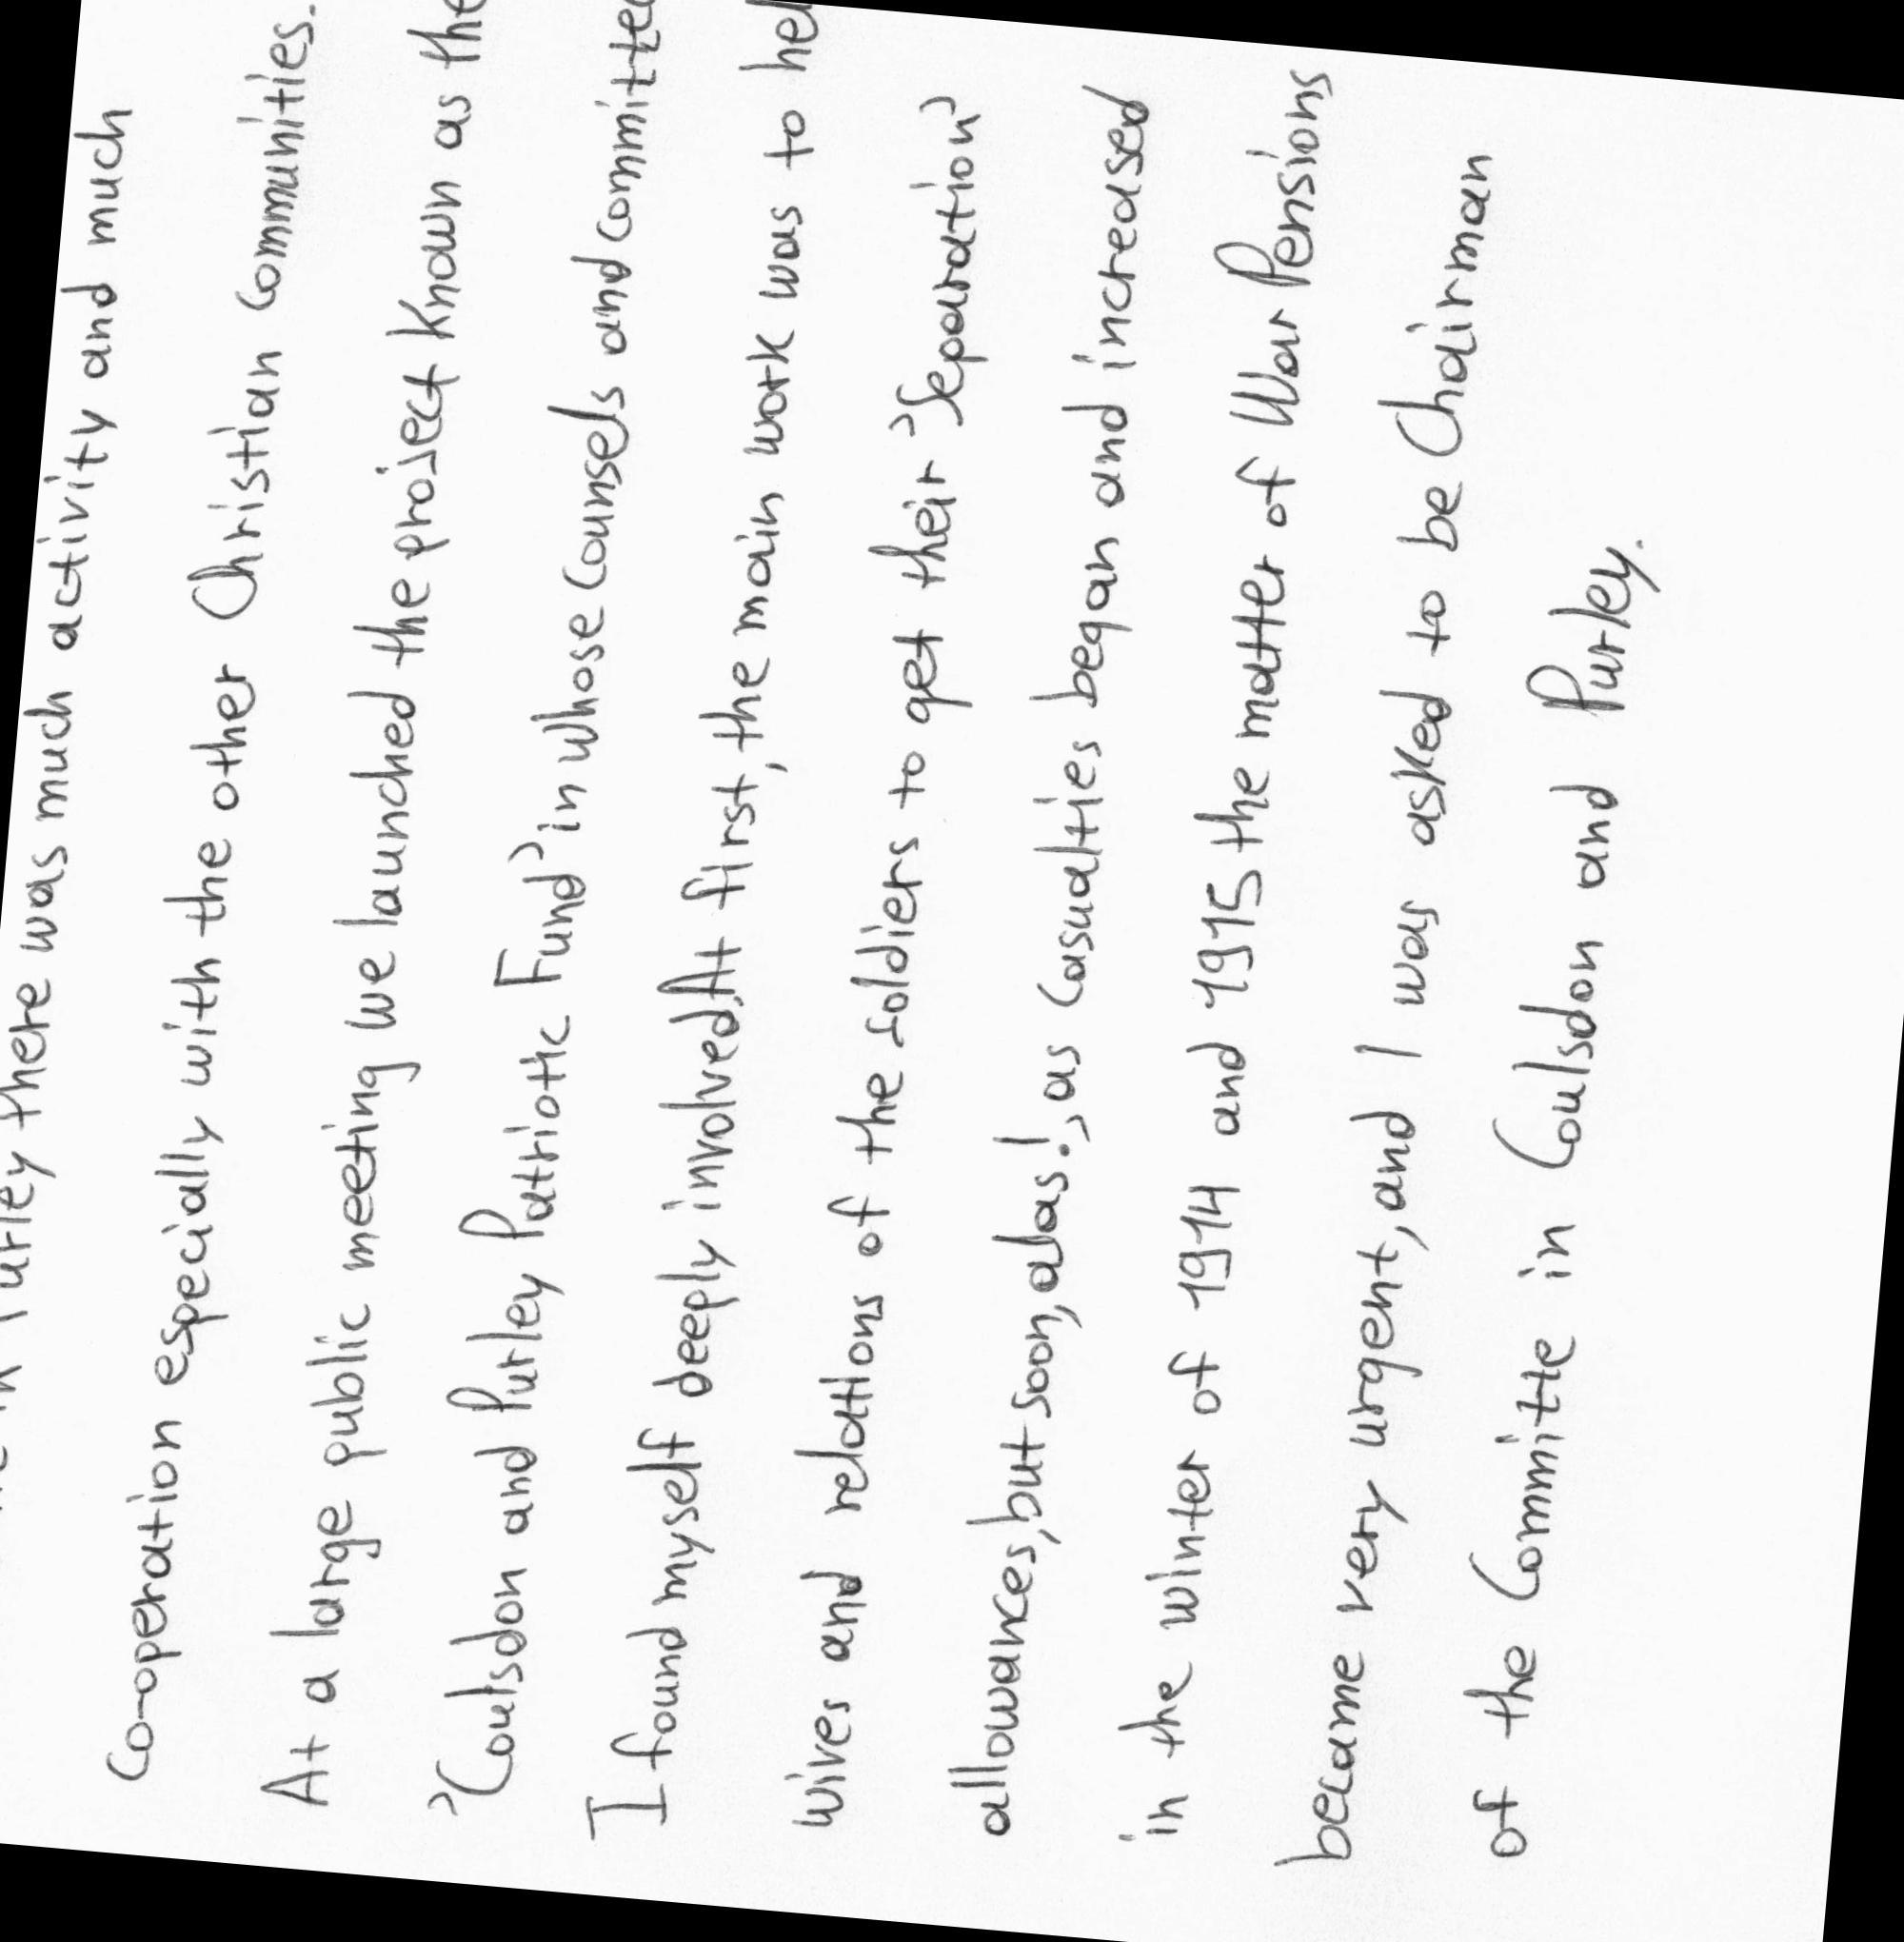 Purley there was much activity and much
Co-operation especially with the other Christian Communities.
At a large public meeting we launched the project known as the
'Coulsdon and Purley Patriotic Fund' in whose Counsels and
I found myself deeply involved. At first, the main work was to
wives and relations of the soldiers to get their 'Separation'
allowances, but soon, alas!, as Casualties began and increased
in the winter of 1914 and 1915 the matter of War Pensions
became very urgent, and I was asked to be Chairman
of the Committe in Coulsdon and Purley.